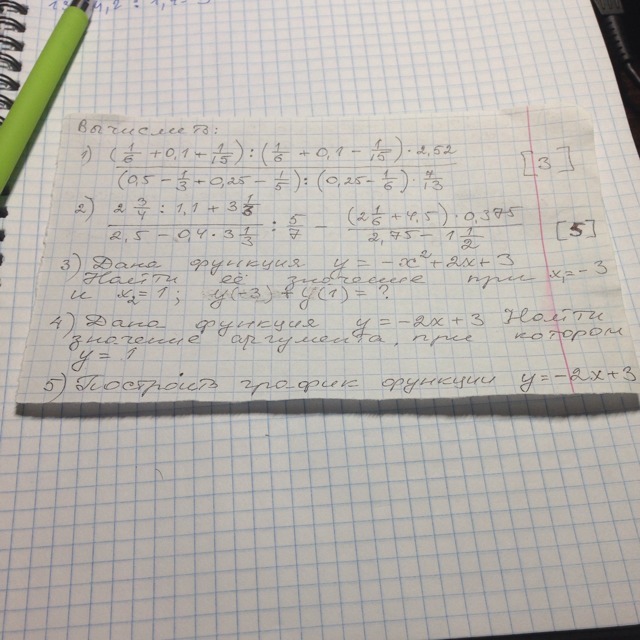 Вычислить:
1) (1/6 + 0,1 + 1/15) : (1/6 + 0,1 − 1/15) · 2,52 [3]
(0,5 − 1/3 + 0,25 − 1/5) : (0,25 − 1/6) · 7/13
2) 2 3/4 : 1,1 + 3 1/3 : 5/7 − (2 1/6 + 4,5) · 0,375 [5]
2,5 − 0,4 · 3 1/3 2,75 − 1 1/2
3) Дана функция y = −x² + 2x + 3
Найти её значение при x₁ = −3
и x₂ = 1; y(−3) + y(1) = ?
4) Дана функция y = −2x + 3 Найти
значение аргумента, при котором
y = 1
5) Построить график функции y = −2x + 3